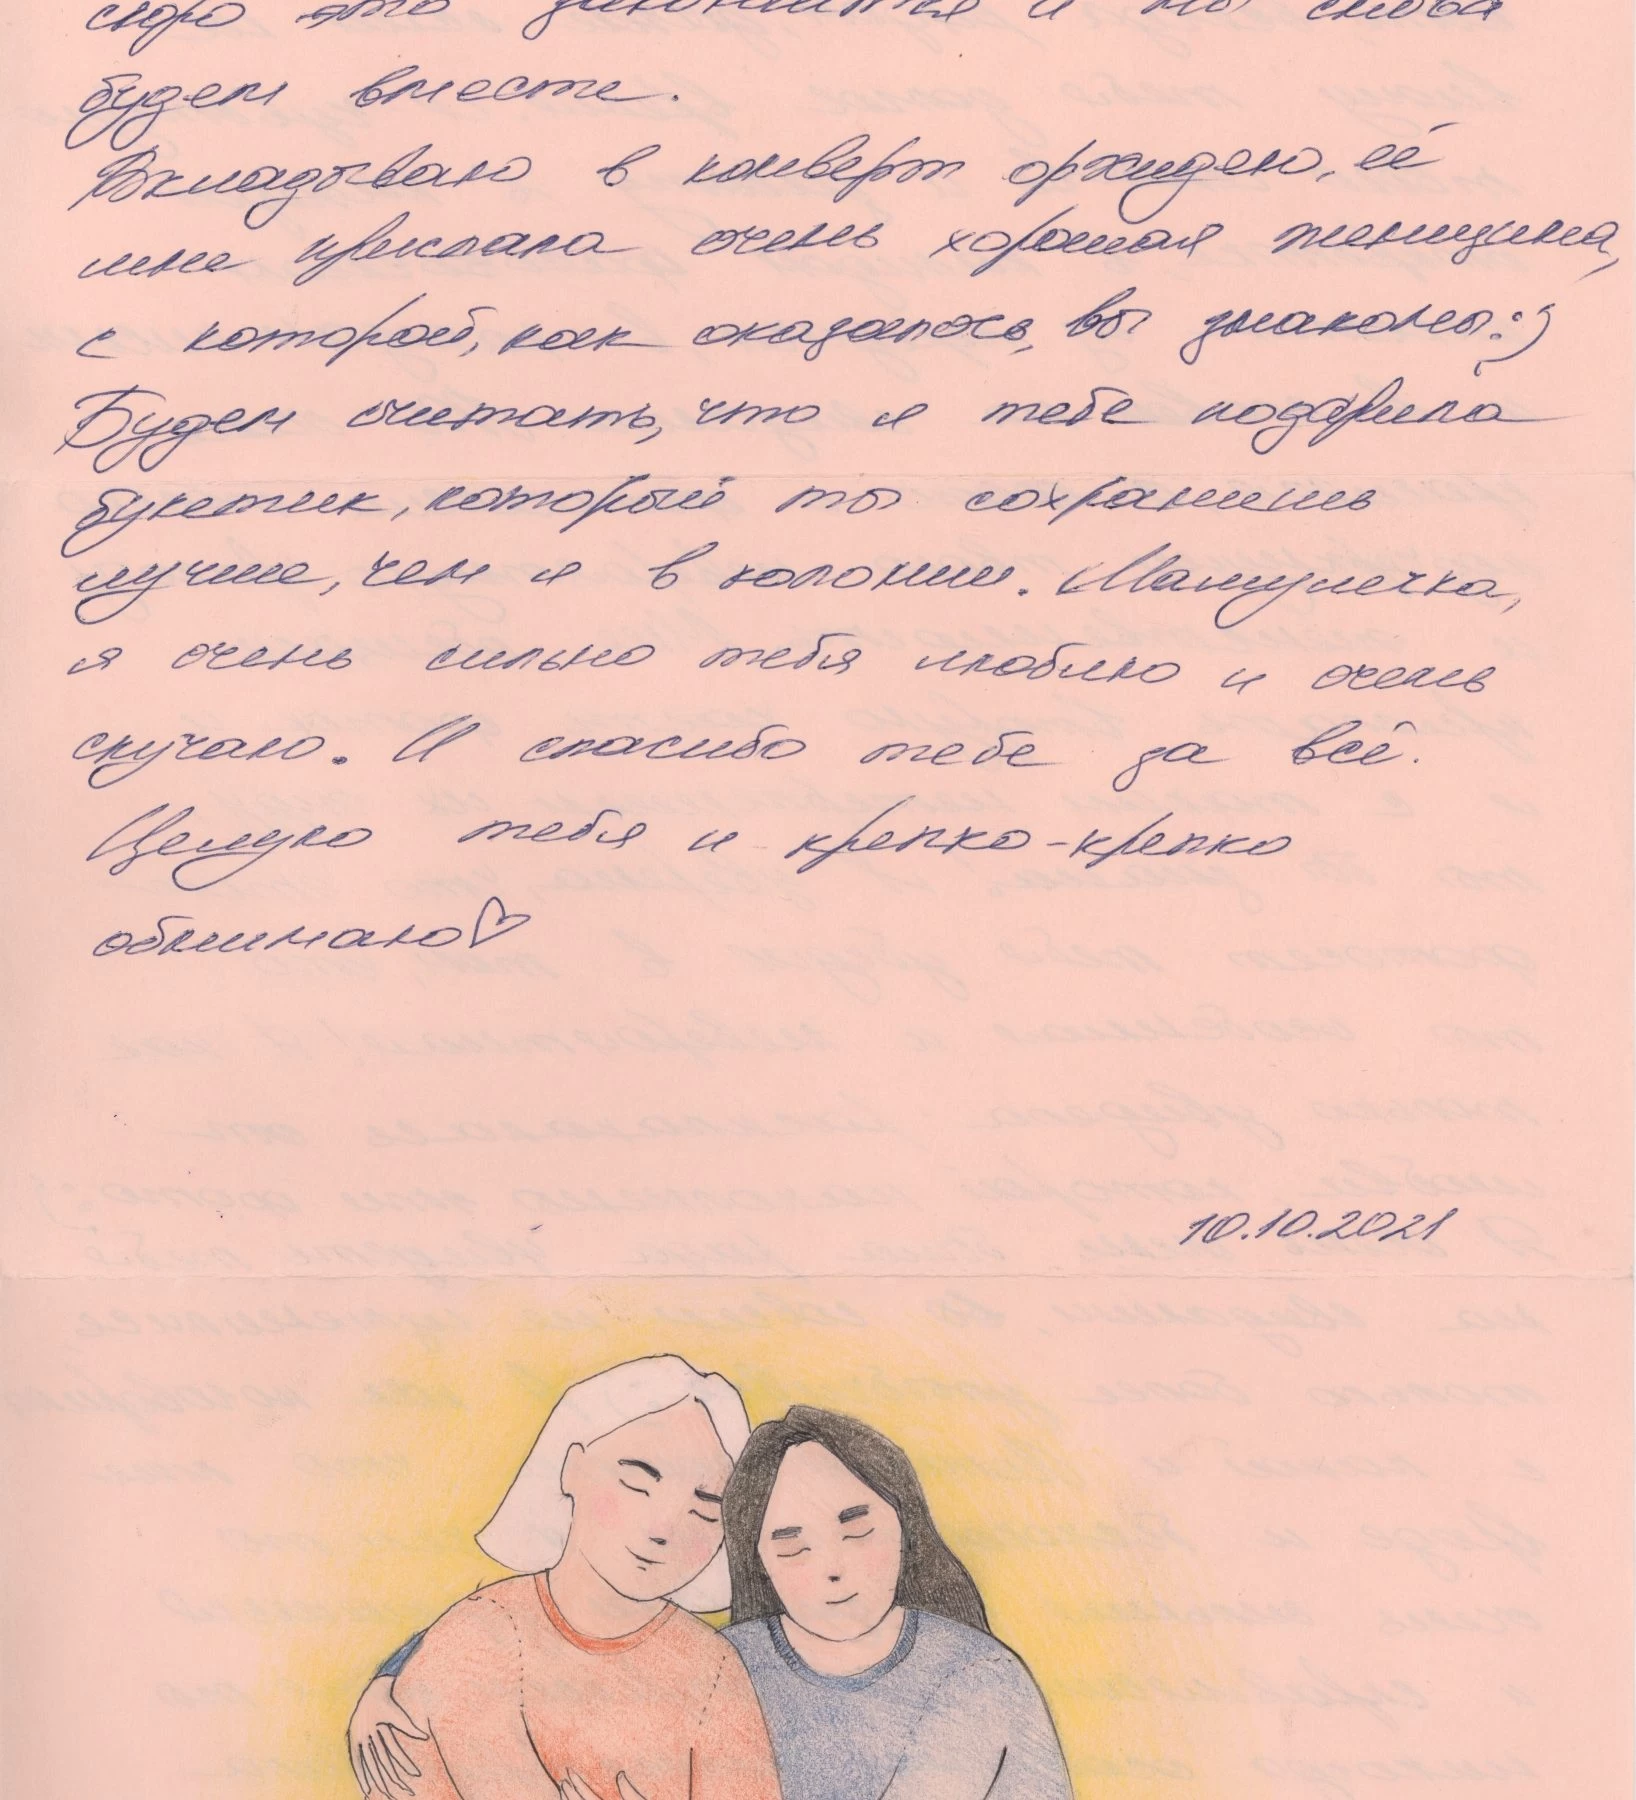 скоро это закончится и мы снова
будем вместе.
Вкладываю в конверт орхидею, её
мне прислала очень хорошая женщина,
с которой, как оказалось, вы знакомы:)
Будем считать, что я тебе подарила
букетик, который ты сохранишь
лучше, чем я в колонии. Мамулечка,
я очень сильно тебя люблю и очень
скучаю. И спасибо тебе за всё.
Целую тебя и крепко-крепко
обнимаю♡
10.10.2021